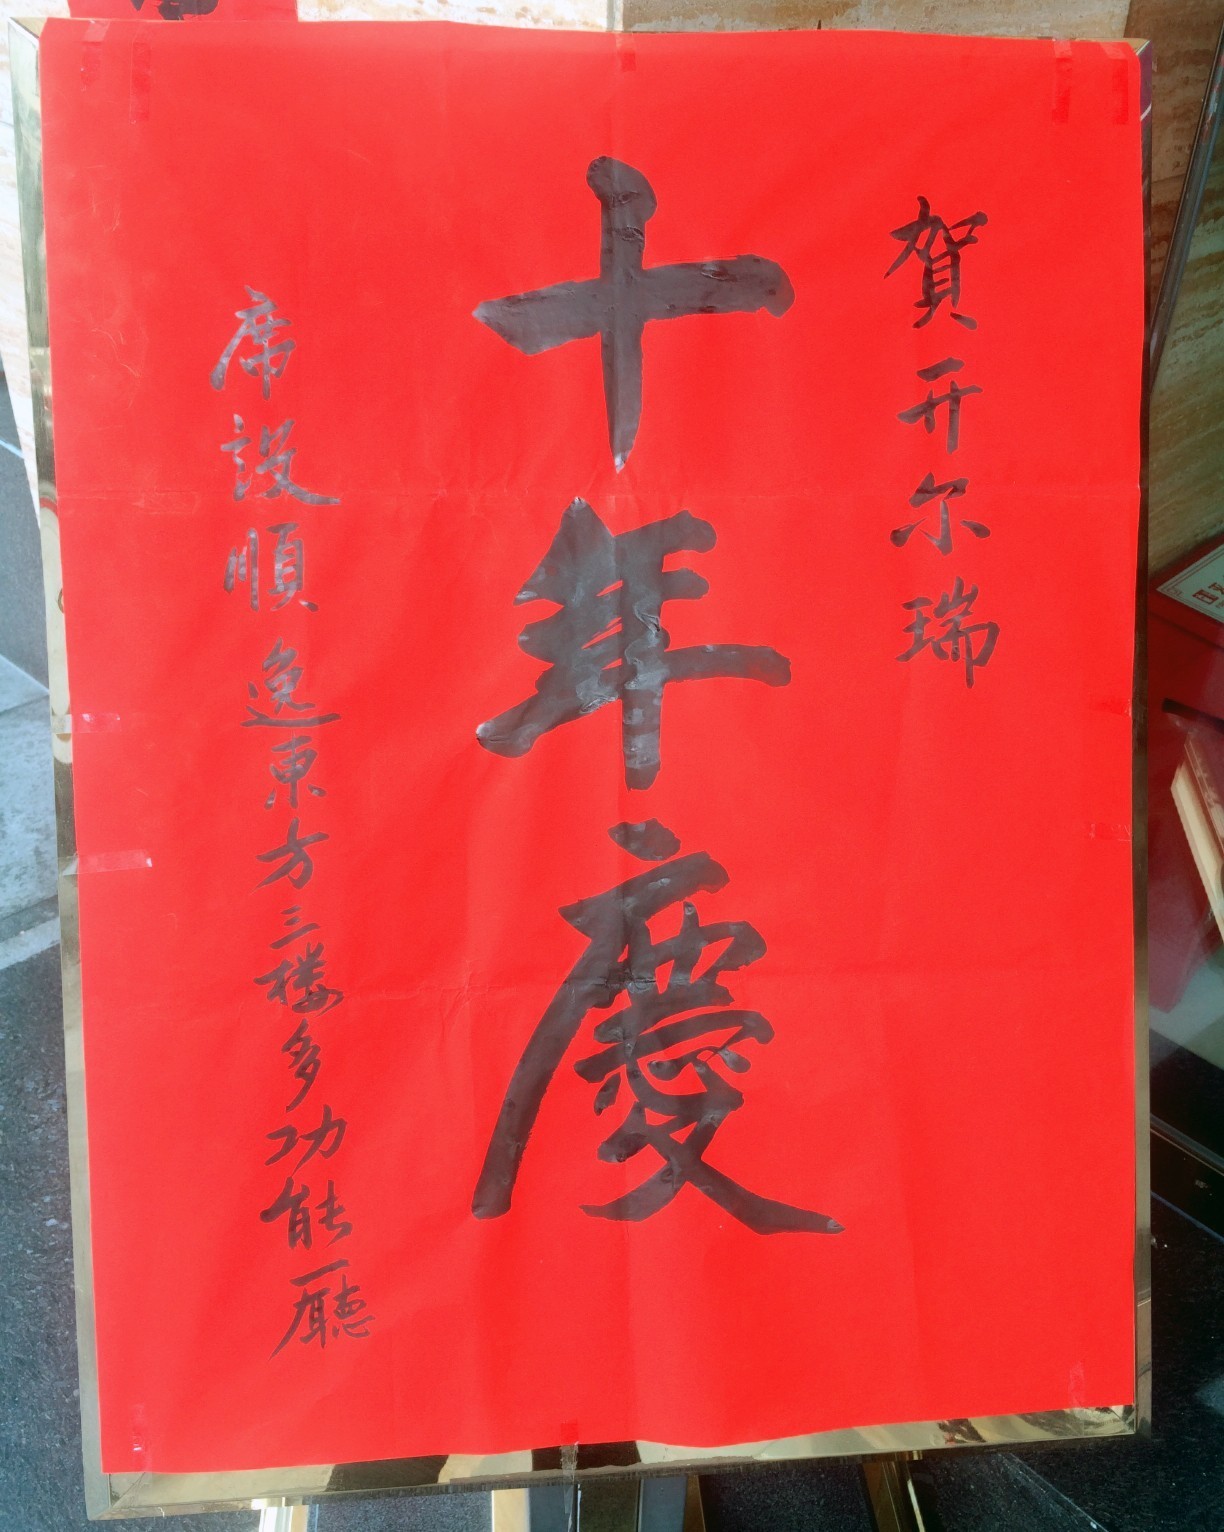 賀开尔瑞
十年慶
席設順逸東方三楼多功能廳